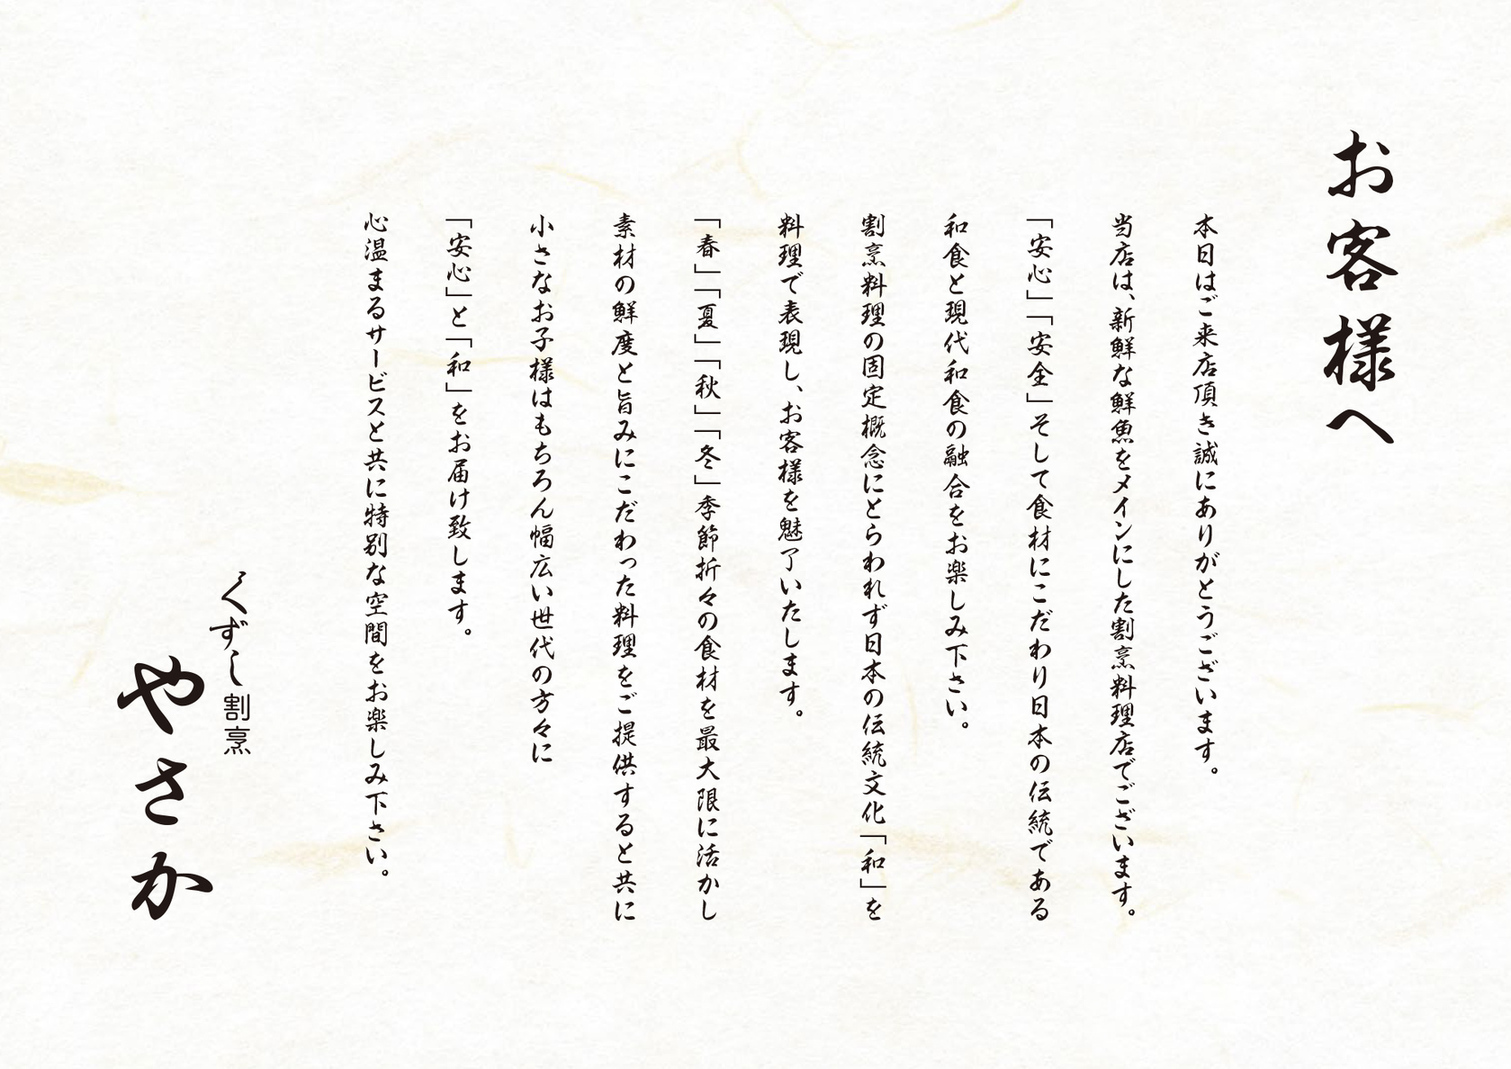 お客様へ
本日はご来店頂き誠にありがとうございます。
当店は、新鮮な鮮魚をメインにした割烹料理店でございます。
「安心」「安全」そして食材にこだわり日本の伝統である
和食と現代和食の融合をお楽しみ下さい。
割烹料理の固定概念にとらわれず日本の伝統文化「和」を
料理で表現し、お客様を魅了いたします。
「春」「夏」「秋」「冬」季節折々の食材を最大限に活かし
素材の鮮度と旨みにこだわった料理をご提供すると共に
小さなお子様はもちろん幅広い世代の方々に
「安心」と「和」をお届け致します。
心温まるサービスと共に特別な空間をお楽しみ下さい。
くずし割烹
やさか